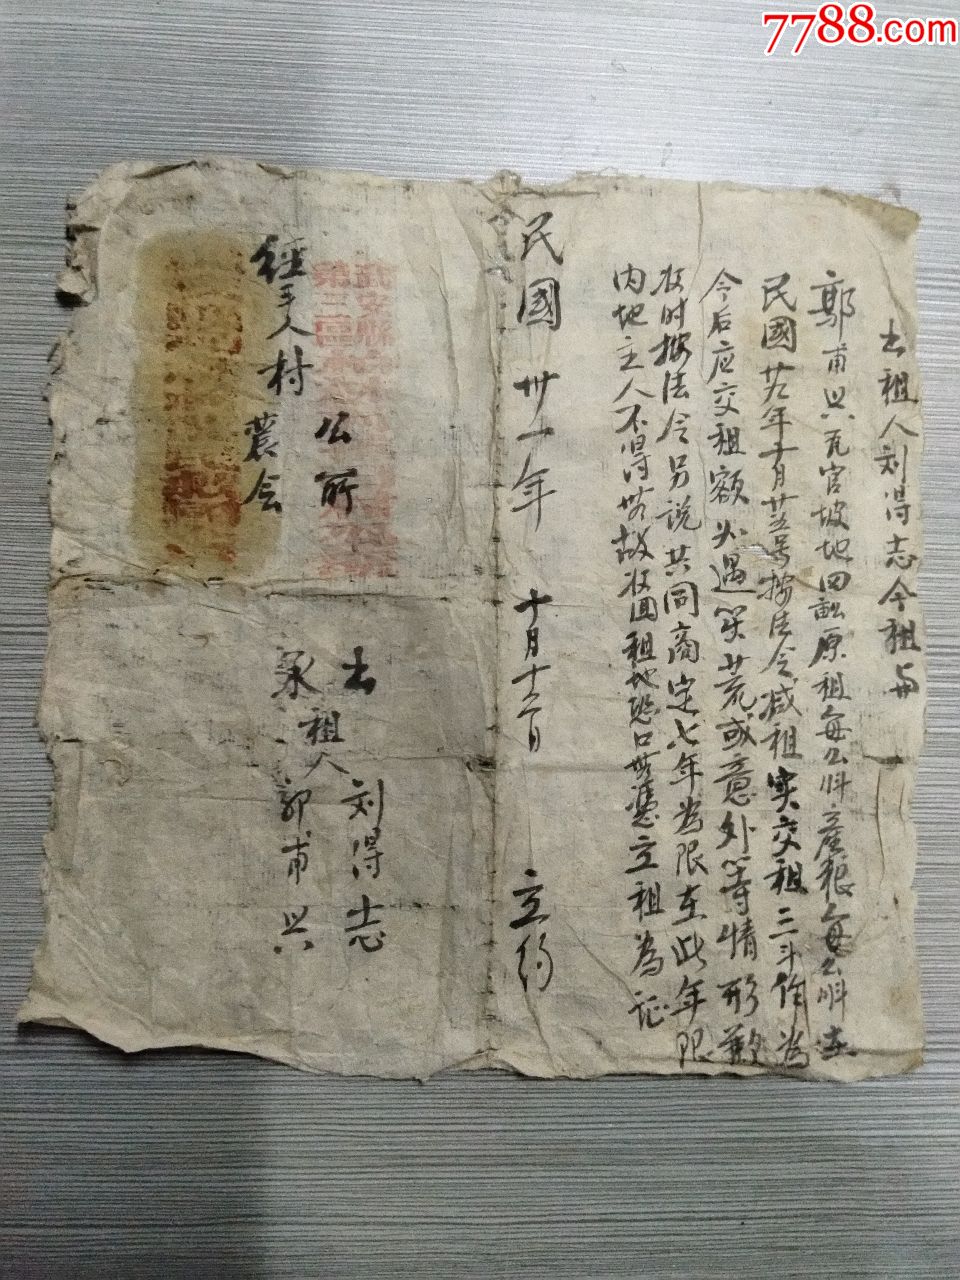 7788.com
出租人刘得志今租与
郭甫兴瓦官坡地四亩原租每公斗产粮每公斗
民國廿九年十月廿五号按法令减租实交租三斗作为
今后应交租额如遇笑荒或意外等情形
收时按法令另说共同商定七年为限在此年限
内地主人不得无故收回租地恐口无凭立租为证
民國卅一年 十月十二日 立约
武安縣
第三區
公所
經手人村
農会
出
承
租人
刘得志
郭甫兴